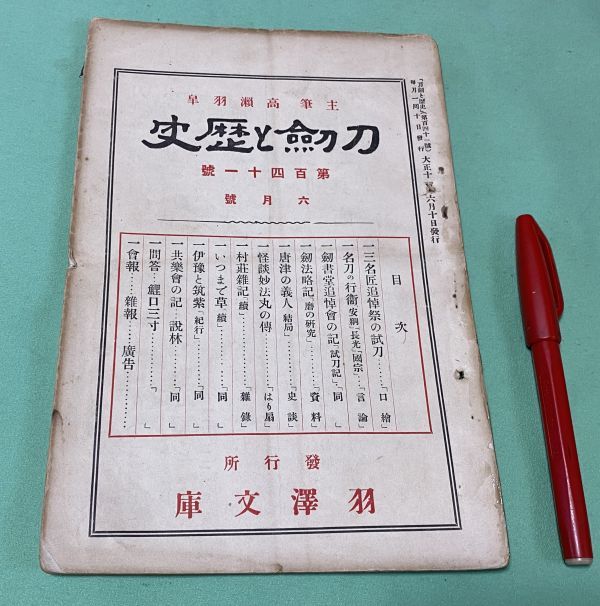 主筆高瀬羽皐
刀劍と歴史
第百四十一號
六月號
「刀劍と歴史」(第百四十一號) 大正十 年六月十日發行
毎月一回十日發行
目次
一三名匠追悼祭の試刀……「口繪」
一名刀の行衞「安綱」「長光」「國宗」…「言論」
一劒書堂追悼會の記「試刀記」…「同」
一劒法略記「磨の研究」……「資料」
一唐津の義人「結局」……「史談」
一怪談妙法丸の傳……「はり扇」
一村莊雜記「續」……「雜錄」
一いつまで草「續」……「同」
一伊豫と筑紫「紀行」……「同」
一共樂會の記……說林……「同」
一問答……鯉口三寸……「」
一會報……雜報……廣告……
發行所
羽澤文庫